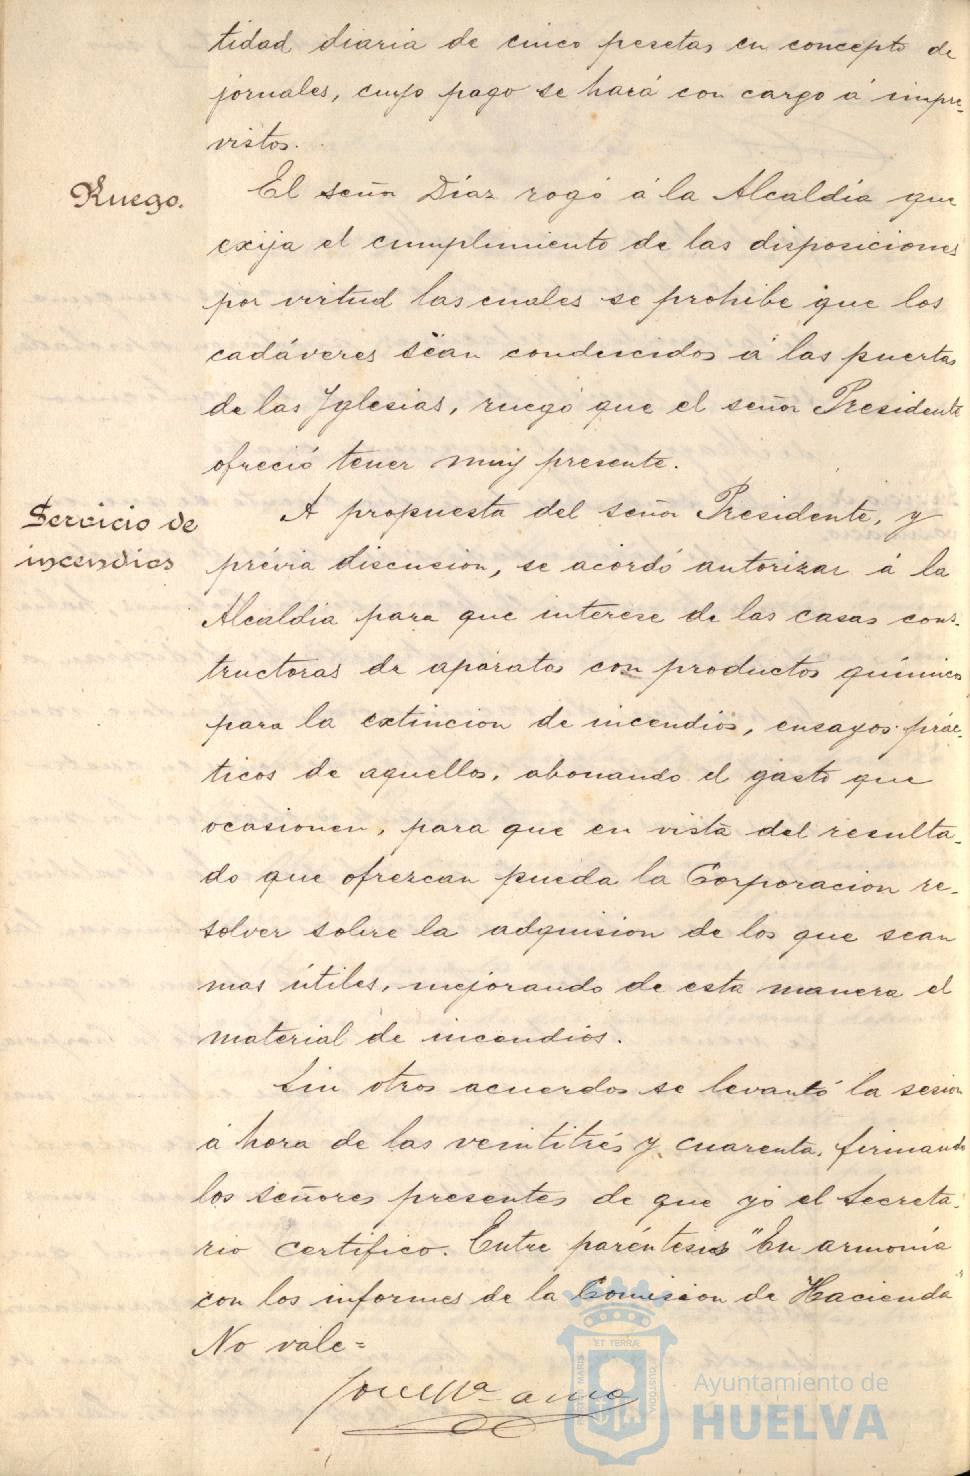 tidad diaria de cinco pesetas en concepto de
jornales, cuyo pago se hará con cargo á impre-
vistos.
Ruego.
El señor Díaz rogó á la Alcaldía que
exija el cumplimiento de las disposiciones
por virtud las cuales se prohibe que los
cadáveres sean conducidos á las puertas
de las Yglesias, ruego que el señor Presidente
ofreció tener muy presente.
Servicio de
incendios
A propuesta del señor Presidente, y
prévia discusion, se acordó autorizar á la
Alcaldia para que interese de las casas cons-
tructoras de aparatos con productos químicos
para la extincion de incendios, ensayos prác-
ticos de aquellos, abonando el gasto que
ocasionen, para que en vista del resulta-
do que ofrezcan pueda la Corporacion re-
solver sobre la adquision de los que sean
mas útiles, mejorando de esta manera el
material de incendios.
Sin otros acuerdos se levantó la sesion
á hora de las veintitrés y cuarenta, firmando
los señores presentes de que yo el Secreta-
rio certifico. Entre paréntesis "En armonía
con los informes de la Comision de Hacienda"
No vale=
ET TERRÆ
PORTUS MARIS
CUSTODIA
Ayuntamiento de
HUELVA